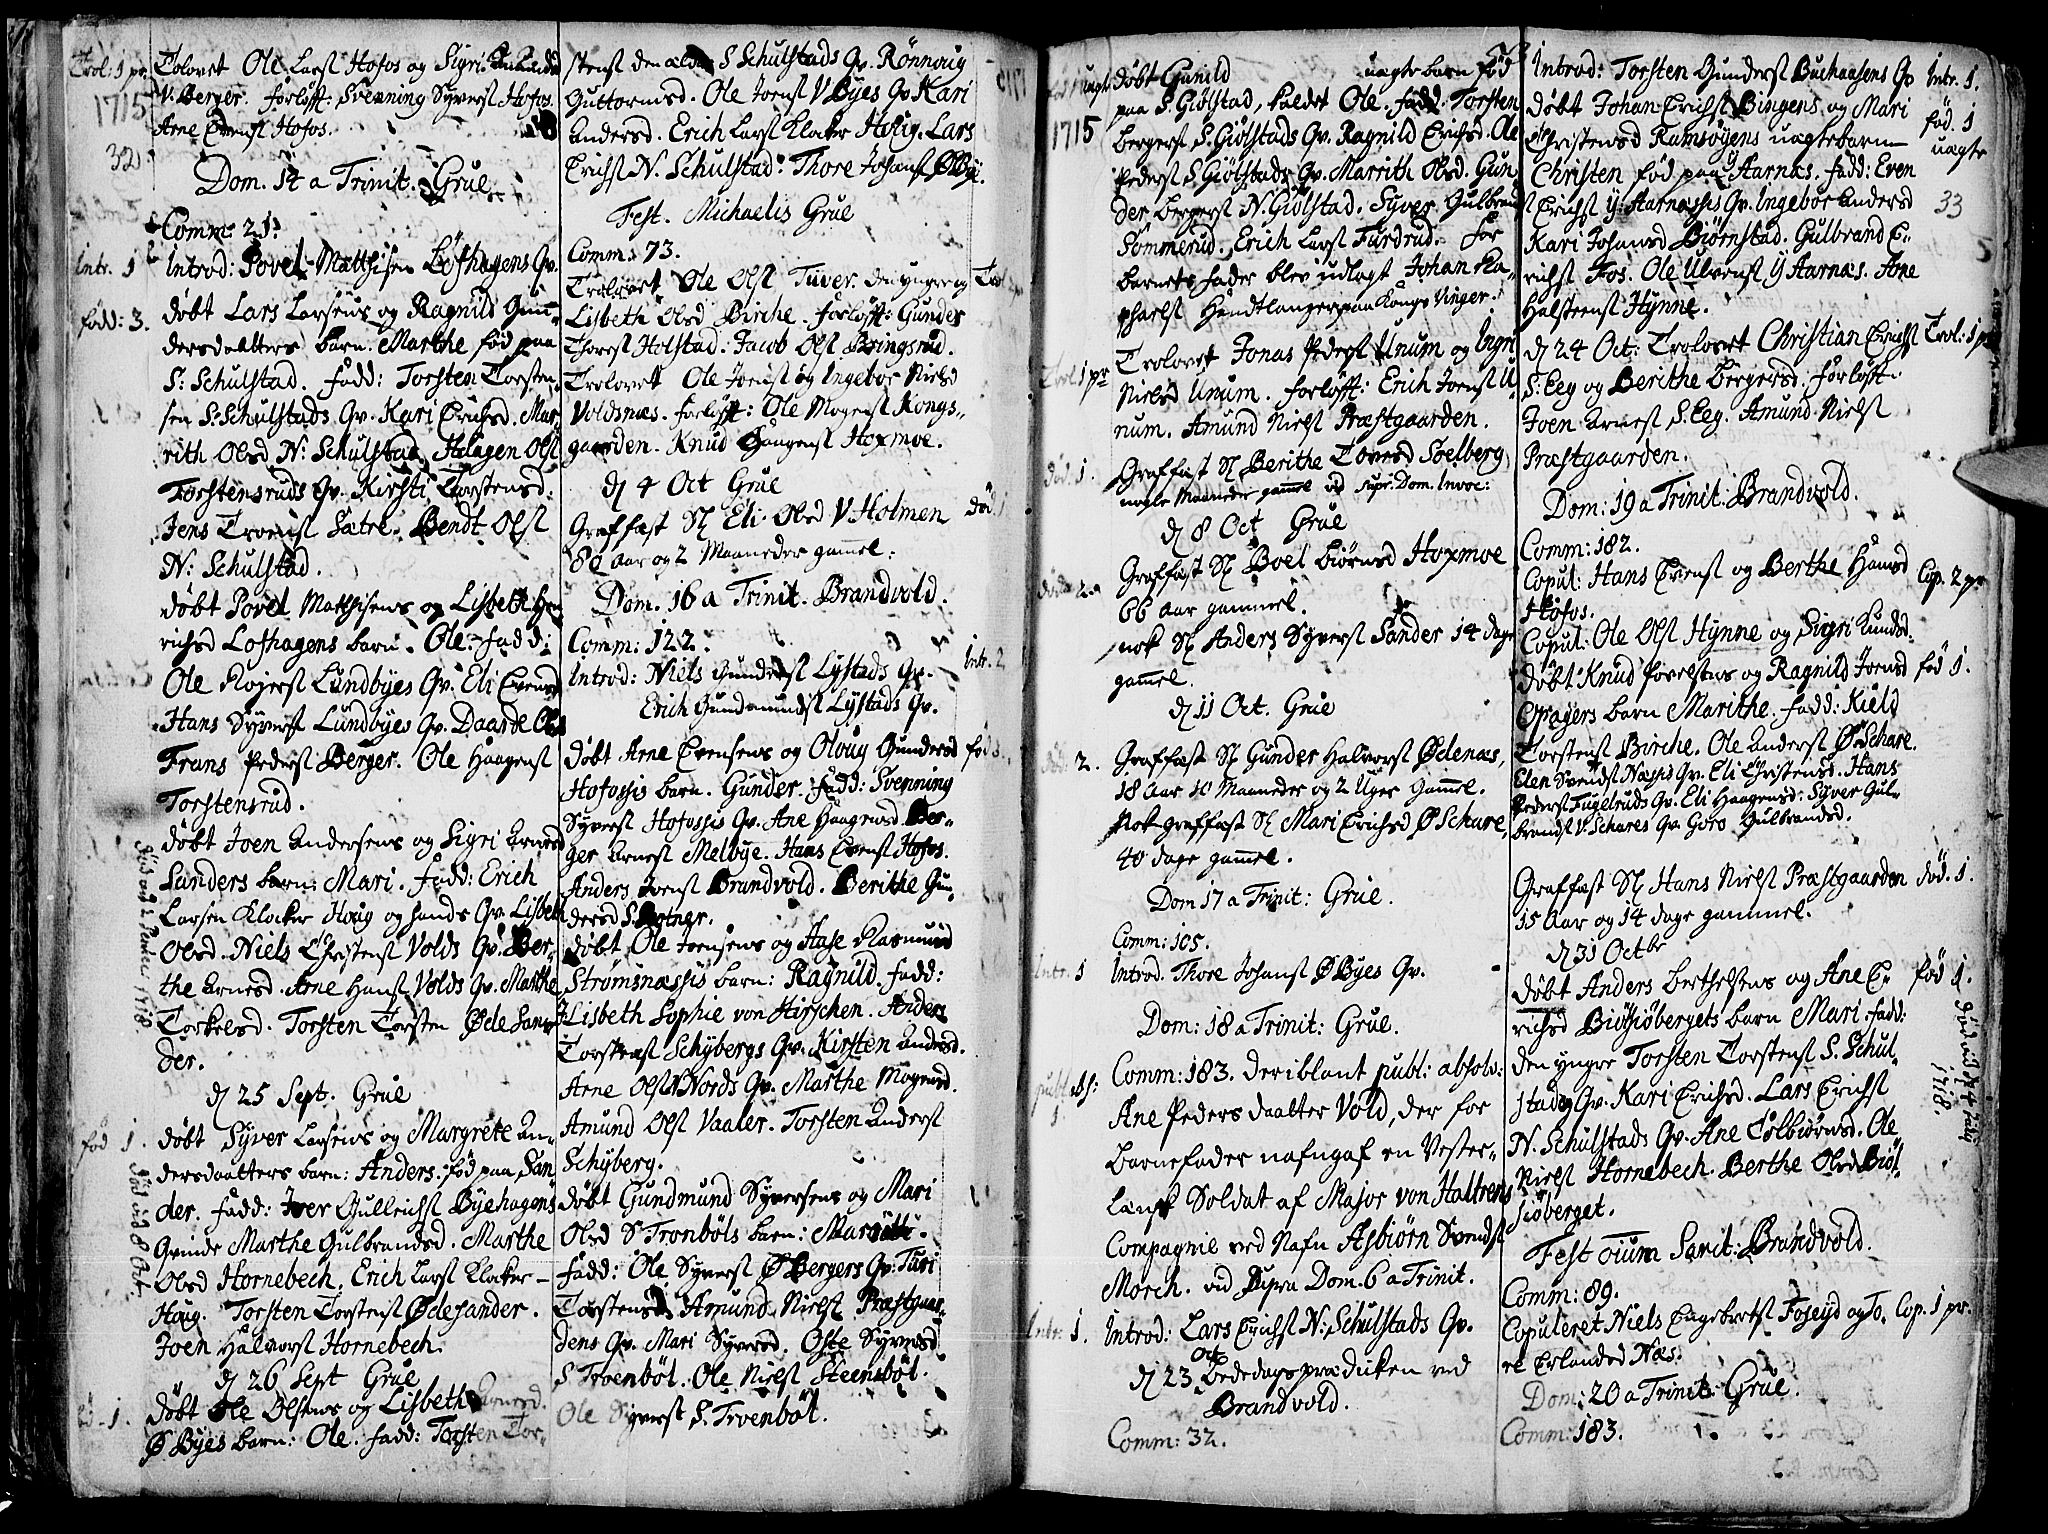 Trol: 1 pr
1715
32
Trolovet Ole Larsf Hofos og Sigri
V. Berger. forlöfft: Svenning Syversf Hofos.
Arne Evensf Hofos.
Dom. 14 a Trinit. Grue.
Comm: 21.
Intr. 1
Introd: Povel Matthisen Lofhagens Qv.
född: 3.
döbt Lars Larsens og Ragnild Gun-
dersdaatters barn. Marthe föd paa
S: Schulstad. fadd: Torsten Torsten-
sen S: Schulstads Qv. Kari Erichsd. Mar-
rith Olsd N: Schulstad. Halgen Olsf
Torstensruds Qv. Kirsti Torstensd:
Jens Troensf Sætre. Bendt Olsf
N: Schulstad.
döbt Povel Matthisens og Lisbeth Hen-
richsd Lofhagens barn. Ole. fadd:
Ole Rojersf Lundbyes Qv. Eli Evensd
Hans Syversf Lundbyes Qv. Daarde Olsd
Frans Pedersf Berger. Ole Haagensf
Torstensrud.
döbt Joen Andersens og Sigri Arnesd
Sanders barn: Mari. fadd: Erich
Larsen Klocker Houg og hands Qv. Lisbeth
Olsd. Niels Christensf Volds Qv. Ber-
the Arnesd. Arne Hansf Volds Qv. Marthe
Torkelsd. Torsten Torsten Öde San-
der.
d 25 Sept. Grue
föd 1.
döbt Syver Larsens og Margrete An-
dersdaatters barn: Anders. föd paa San-
der. fadd: Iver Gullichsf Byehagens
Qvinde Marthe Gulbrandsd. Marthe
Olsd Hornebech. Erich Larsf Klocker
Houg. Torsten Torstensf Ödesander.
Joen Halvorsf Hornebech.
död id 8 Oct.
d 26 Sept Grue
föd. 1.
döbt Ole Olsens og Lisbeth Arnesd.
Ö Byes barn: Ole. fadd: Torsten Tor-
stensf den ældre S Schulstads Qv. Rönnoug
Guttormsd. Ole Joensf V Byes Qv Kari
Andersd. Erich Larsf Klocker Houg. Lars
Erichsf N. Schulstad. Thore Johansf Ö Bye.
Fest. Michaelis Grue
Comm: 73.
Trolovet Ole Olsf Tuver den yngre og
Lisbeth Olsd Birche. forlöfft: Gunder
Thoresf Holstad. Jacob Olsf Bringsrud.
Trolovet Ole Joensf og Ingebor Nielsd
Voldsnæs. forlöfft: Ole Mogensf Kongs-
gaarden. Knud Haagensf Hoxmoe.
d 4 Oct Grue
död. 1
Graffæst Sl Eli Olsd V Holmen
80 Aar og 2 Maaneder gamel:
Dom. 16 a Trinit. Brandvold.
Comm: 122.
Intr. 2
Introd: Niels Gundersf Lystads Qv.
Erich Gundmundsf Lystads Qv.
föd 3.
döbt Arne Evensens og Oloug Gundersd
Hofossis barn. Gunder. fadd: Svenning
Syversf Hofossis Qv. Ane Haagensd Ber-
ger Arnesf Melbye. Hans Evensf Hofos.
Anders Joensf Brandvold. Berithe Gun-
dersd S. Botner.
döbt Ole Joensens og Aase Rasmusd
Strömsnæssis barn: Ragnild. fadd:
Lisbeth Sophie von Hirschen. Anders
Torstensf Schybergs Qv. Kirsten Andersd.
Arne Olsf Nords Qv. Marthe Mogensd.
Amund Olsf Vaaler. Torsten Andersf
Schyberg.
döbt Gundmund Syversens og Mari
Olsd S Tronböls barn: Maritte.
fadd: Ole Syversf Ö Bergers Qv. Turi
Torstensd. Amund Nielsf Præstgaar-
dens Qv. Mari Syversd. Oste Syversd
S Troenböl. Ole Nielsf Steensböl.
Ole Syversf S. Troenböl.
uagte
1715
döbt Gunild uagte barn föd
paa S. Giölstad, kaldet Ole. fadd. Torsten
Bergersf S. Giölstads Qv. Ragnild Erichsd. Ole
Pedersf S. Giölstads Qv. Marrith Olsd. Gun-
der Bergersf N. Giölstad. Syver Gulbrandsf
Sömmerud. Erich Larsf Furdrud. for
barnets fader blev udlagt Johan Ra-
phaelsf Handtlanger paa Kongs Vinger.
Trol 1 pr
Trolovet Jonas Pedersf Unum og Ingri
Nielsd Unum. forlöfft: Erich Joensf U-
num. Amund Nielsf Præstgaarden.
död. 1.
Graffæst Sl Berithe Toresd Soelberg
nogle Maaneder gamel vid supr. Dom. Invoc:
d 8 Oct Grue
död. 2.
Graffæst Sl Boel Biörnsd Hoxmoe
66 Aar gammel.
nok Sl Anders Syversf Sander 14 dage
gamel.
d 11 Oct. Grue
2.
Graffæst Sl Gunder Halvorsf Ödenæs,
18 Aar 10 Maaneder og 2 Uger gamel.
Nok graffæst Sl Mari Erichsd Ö Schare,
40 dage gamel.
Dom 17 a Trinit: Grue.
Comm: 105.
Intr. 1
Introd. Thore Johansf Ö Byes Qv.
Dom: 18 a Trinit: Grue.
publ: abs: 1
Comm: 183. deriblant publ: absolv:
Ane Peders daatter Vold, der for
Barnefader nafngaf en Vester-
lænsk Soldat af Major von Haltrens
Compagnie ved Nafn Asbiörn Svendsf
Morch. vid supra Dom. 6 a Trinit.
Intr: 1.
Introd: Lars Erichsf N: Schulstads Qv.
d 23 Oct Bededags prædicken ved
Brandvold.
Comm: 32.
Introd: Torsten Gundersf Buchaasens Qv
Intr. 1.
döbt Johan Erichsf Bingens og Mari
Christensd Ramsöyens uagtebarn
föd. 1
uagte
33
Christen föd paa Aarnæs. fadd: Even
Erichsf Y Aarnæssis Qv. Ingebor Andersd
Kari Johansd Biörnstad. Gulbrand E-
richsf Fos. Ole Ulvensf Y Aarnæs. Ane
Halstensf Hynne.
d 24 Oct: Trolovet Christian Erichsf
Trol: 1 pr
S. Eeg og Berithe Bergersd. forlöfft:
Joen Arnesf S. Eeg. Amund Nielsf
Præstgaarden.
Dom: 19 a Trinit: Brandvold.
Comm: 182.
Copul: Hans Evensf og Berthe Hansd
Cop. 2 pr
Hofos.
Copul: Ole Olsf Hynne og Sigri Knudsd:
döbt Knud Povelsens og Ragnild Joensd
föd 1.
Opagers barn Marithe. fadd: Kield
Torstensf Birche. Ole Andersf Ö Schare.
Elen Svendsf Næssis Qv. Eli Christensd. Hans
Pedersf Fugelruds Qv. Eli Haagensd. Syver Gul-
brandsf V. Schares Qv. Goro Gulbrandsd.
Graffæst Sl Hans Nielsf Præstgaarden
död. 1.
15 Aar og 14 dage gammel.
d 31 Octbr
döbt Anders Berthelsens og Ane E-
föd 1.
richsd Biösiöbergets barn Mari. fadd:
den yngre Torsten Torstensf S. Schul-
stads Qv. Kari Erichsd. Lars Erichsf
N. Schulstads Qv. Ane Tolbiörnsd. Ole
Nielsf Hornebech. Berthe Olsd Biöt-
siöberget.
1718.
Fest Oium Sanct: Brandvold.
Comm: 89.
Copuleret Niels Engebretsf Foseyd og To-
Cop. 1 pr.
re Erlandsd Næs.
Dom: 20 a Trinit: Grue.
Comm: 183.